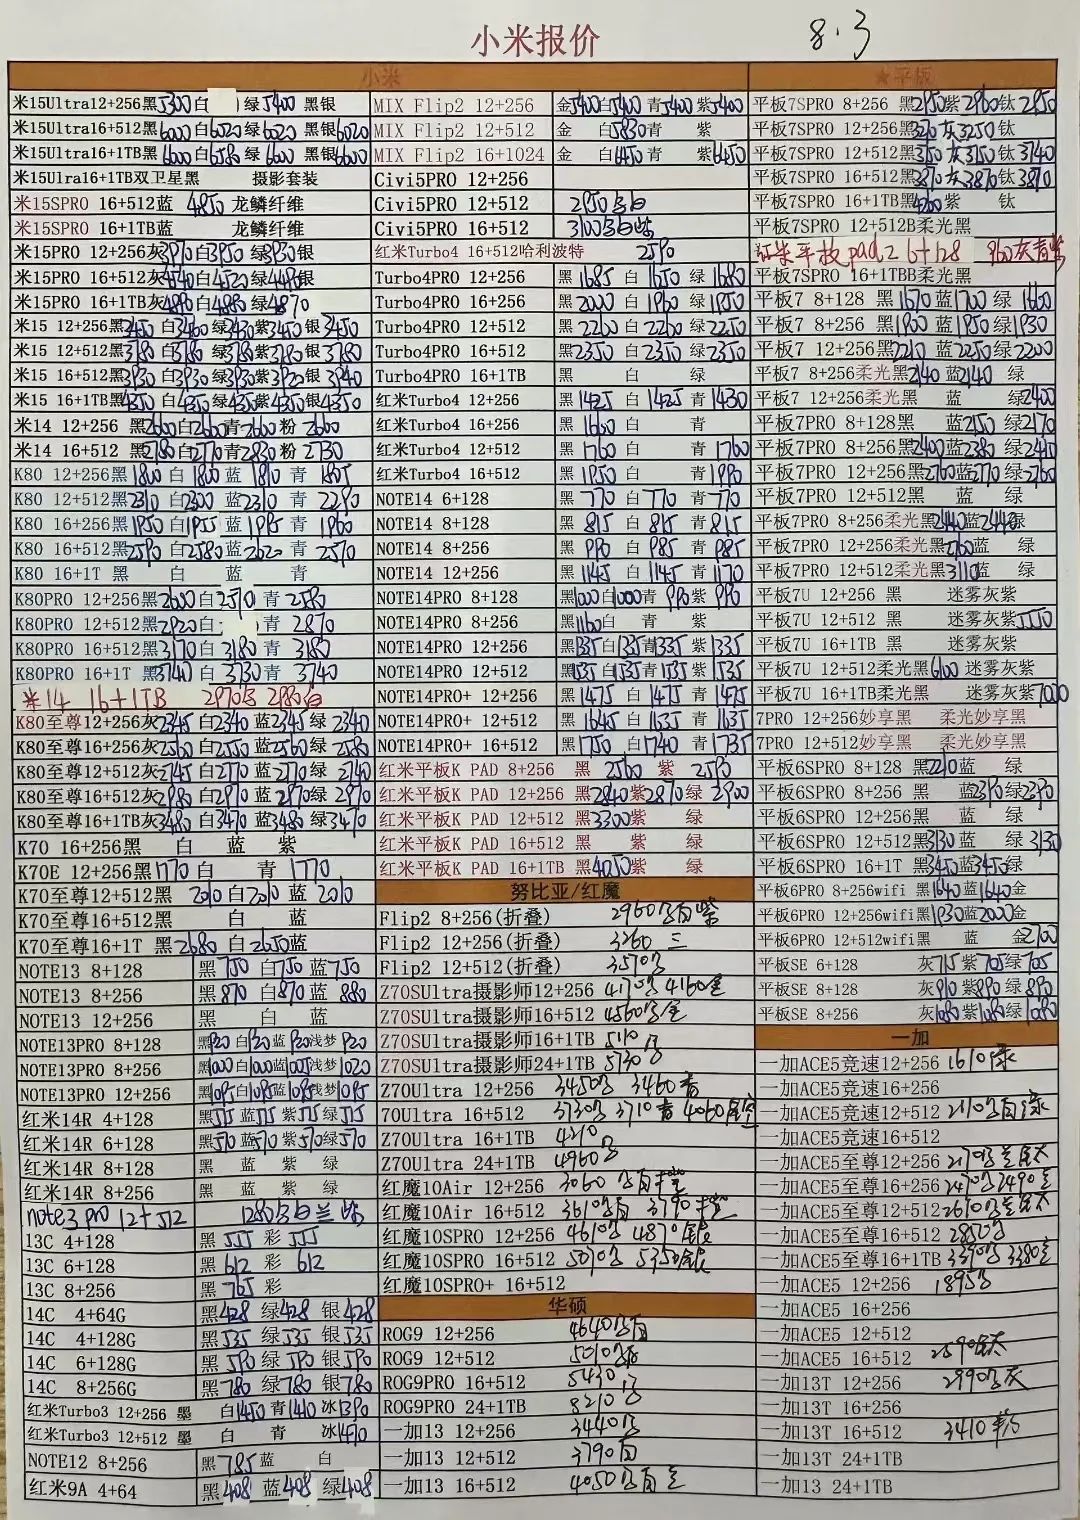 小米报价
8.3
小米
米15Ultra12+256黑5300白 绿5400 黑银
米15Ultra16+512黑6000白6020绿6020黑银6020
米15Ultra16+1TB黑6600白6580绿6600黑银6600
米15Ulra16+1TB双卫星黑 摄影套装
米15SPRO 16+512蓝 4850 龙鳞纤维
米15SPRO 16+1TB蓝 龙鳞纤维
米15PRO 12+256灰3970白3950绿3930银
米15PRO 16+512灰4540白4520绿4490银
米15PRO 16+1TB灰4890白4880绿4870
米15 12+256黑3450白3460绿3430紫3450银3450
米15 12+512黑3780白3780绿3780紫3780银3780
米15 16+512黑3930白3930绿3930紫3920银3940
米15 16+1TB黑4350白4350绿4350紫4350银4350
米14 12+256 黑2600白2600青2600粉 2600
米14 16+512 黑2780白2770青2830粉 2730
K80 12+256黑1800白1800蓝1810青1805
K80 12+512黑2310白2300蓝2310青2290
K80 16+256黑1950白1955蓝1995青1960
K80 16+512黑2590白2580蓝2620青2570
K80 16+1T 黑 白 蓝 青
K80PRO 12+256黑2600白2590青2580
K80PRO 12+512黑2920白 青2870
K80PRO 16+512黑3170白3180青3180
K80PRO 16+1T 黑3740白3730青3740
米14 16+1TB 2970黑 2980白
K80至尊12+256灰2345白2340蓝2345绿2340
K80至尊16+256灰2560白2550蓝2560绿2580
K80至尊12+512灰2745白2770蓝2770绿2740
K80至尊16+512灰2980白2970蓝2970绿2970
K80至尊16+1TB灰3480白3470蓝3480绿3470
K70 16+256黑 白 蓝 紫
K70E 12+256黑1770白 青1770
K70至尊12+512黑 2010白2010蓝 2010
K70至尊16+512黑 白 蓝
K70至尊16+1T 黑2680 白2650蓝
NOTE13 8+128 黑750白750蓝750
NOTE13 8+256 黑870 白870蓝 880
NOTE13 12+256 黑 白 蓝
NOTE13PRO 8+128 黑920白920蓝920浅梦920
NOTE13PRO 8+256 黑1000白1000蓝1005浅梦1020
NOTE13PRO 12+256 黑1095白1095蓝1095浅梦1095
红米14R 4+128 黑515蓝515紫515绿515
红米14R 6+128 黑570蓝570紫570绿570
红米14R 8+128 黑 蓝 紫 绿
红米14R 8+256 黑 蓝 紫 绿
note3 pro 12+512 1280黑白兰紫
13C 4+128 黑555彩555
13C 6+128 黑612彩612
13C 8+256 黑765彩
14C 4+64G 黑428绿428银428
14C 4+128G 黑535绿535银535
14C 6+128G 黑590绿590银590
14C 8+256G 黑780绿780银780
红米Turbo3 12+256 墨 白1450青1410冰1390
红米Turbo3 12+512 墨 白 青 冰1470
NOTE12 8+256 黑785蓝 白
红米9A 4+64 黑408蓝408绿408
MIX Flip2 12+256 金5400白5400青5400紫5400
MIX Flip2 12+512 金 白5830青 紫
MIX Flip2 16+1024 金 白6450青 紫6450
Civi5PRO 12+256
Civi5PRO 12+512 2950黑白
Civi5PRO 16+512 3100黑白紫
红米Turbo4 16+512哈利波特 2590
Turbo4PRO 12+256 黑1685白1650绿1680
Turbo4PRO 16+256 黑2000白1960绿1950
Turbo4PRO 12+512 黑2260白2260绿2250
Turbo4PRO 16+512 黑2350白2350绿2350
Turbo4PRO 16+1TB 黑 白 绿
红米Turbo4 12+256 黑1425白1425青1430
红米Turbo4 16+256 黑1650白 青
红米Turbo4 12+512 黑1760白 青1760
红米Turbo4 16+512 黑1950白 青1990
NOTE14 6+128 黑770白770青770
NOTE14 8+128 黑815白815青815
NOTE14 8+256 黑990白985青985
NOTE14 12+256 黑1145白1145青1170
NOTE14PRO 8+128 黑1000白1000青990紫990
NOTE14PRO 8+256 黑1160白 青 紫
NOTE14PRO 12+256 黑1335白1335青1335紫1335
NOTE14PRO 12+512 黑1535白1535青1535紫1535
NOTE14PRO+ 12+256 黑1475白1475青1475
NOTE14PRO+ 12+512 黑1645白1635青1635
NOTE14PRO+ 16+512 黑1750白1740青1735
红米平板K PAD 8+256 黑 2560紫 2590
红米平板K PAD 12+256 黑2840紫2870绿2900
红米平板K PAD 12+512 黑3300紫 绿
红米平板K PAD 16+1TB 黑4050紫 绿
努比亚/红魔
Flip2 8+256(折叠) 2960黑白紫
Flip2 12+256(折叠) 3260 三
Flip2 12+512(折叠) 3570黑
Z70SUltra摄影师12+256 4170黑4160金
Z70SUltra摄影师16+512 4560黑金
Z70SUltra摄影师16+1TB 5110黑
Z70SUltra摄影师24+1TB 5730黑
Z70Ultra 12+256 3450黑 3460青
70Ultra 16+512 3730黑 3710青 4060星空
Z70Ultra 16+1TB 4210
Z70Ultra 24+1TB 4960黑
红魔10Air 12+256 3060 黑白
红魔10Air 16+512 3610黑白 3790
红魔10SPRO 12+256 4610黑 4870银
红魔10SPRO 16+512 5030黑 5350银
红魔10SPRO+ 16+512
华硕
ROG9 12+256 4640黑白
ROG9 12+512 5010黑白
ROG9PRO 16+512 5430黑
ROG9PRO 24+1TB 8210黑
一加13 12+256 3440黑
一加13 12+512 3790白
一加13 16+512 4050黑白兰
★平板
平板7SPRO 8+256 黑2950紫2960钛2850
平板7SPRO 12+256黑3220灰3250钛
平板7SPRO 12+512黑3750灰3750钛3740
平板7SPRO 16+512黑3870灰3870钛3870
平板7SPRO 16+1TB黑4200紫 钛
平板7SPRO 12+512B柔光黑
红米平板pad2 6+128 960灰青紫
平板7SPRO 16+1TBB柔光黑
平板7 8+128 黑1670蓝1700绿1660
平板7 8+256 黑1900蓝1950绿1930
平板7 12+256黑2210蓝2250绿2200
平板7 8+256柔光黑2140蓝2140绿
平板7 12+256柔光黑 蓝 绿2400
平板7PRO 8+128黑 蓝2150绿2170
平板7PRO 8+256黑2400蓝2380绿2410
平板7PRO 12+256黑2760蓝2770绿2760
平板7PRO 12+512黑 蓝 绿
平板7PRO 8+256柔光黑2440蓝2440绿
平板7PRO 12+256柔光黑2760蓝 绿
平板7PRO 12+512柔光黑3110蓝 绿
平板7U 12+256 黑 迷雾灰紫
平板7U 12+512 黑 迷雾灰紫5550
平板7U 16+1TB 黑 迷雾灰紫
平板7U 12+512柔光黑6100迷雾灰紫
平板7U 16+1TB柔光黑 迷雾灰紫7020
7PRO 12+256妙享黑 柔光妙享黑
7PRO 12+512妙享黑 柔光妙享黑
平板6SPRO 8+128 黑2210蓝 绿
平板6SPRO 8+256 黑 蓝2390绿2390
平板6SPRO 12+256黑 蓝 绿
平板6SPRO 12+512黑3130蓝 绿3130
平板6SPRO 16+1T 黑3450蓝3450绿
平板6PRO 8+256wifi 黑1640蓝1640金
平板6PRO 12+256wifi黑1930蓝2000金
平板6PRO 12+512wifi黑 蓝 金2100
平板SE 6+128 灰715紫705绿705
平板SE 8+128 灰910紫890绿890
平板SE 8+256 灰1080紫1080绿1080
一加
一加ACE5竞速12+256 1610绿
一加ACE5竞速16+256
一加ACE5竞速12+512 2110黑白绿
一加ACE5竞速16+512
一加ACE5至尊12+256 2170黑兰钛
一加ACE5至尊16+256 2470黑2490兰
一加ACE5至尊12+512 2610黑兰钛
一加ACE5至尊16+512 2850黑
一加ACE5至尊16+1TB 3390黑3380兰
一加ACE5 12+256 1895黑
一加ACE5 16+256
一加ACE5 12+512
一加ACE5 16+512 2590钛
一加13T 12+256 2990黑灰
一加13T 16+256
一加13T 16+512 3410粉
一加13T 24+1TB
一加13 24+1TB